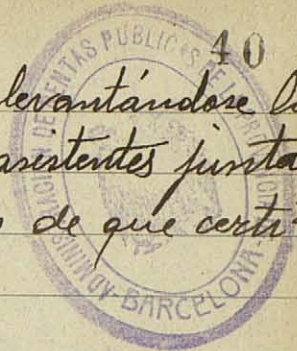 40
levantándose la
asistentes junta
s de que certi-
ADMINISTRACIÓN DE RENTAS PÚBLICAS DE LA PROVINCIA
-BARCELONA-